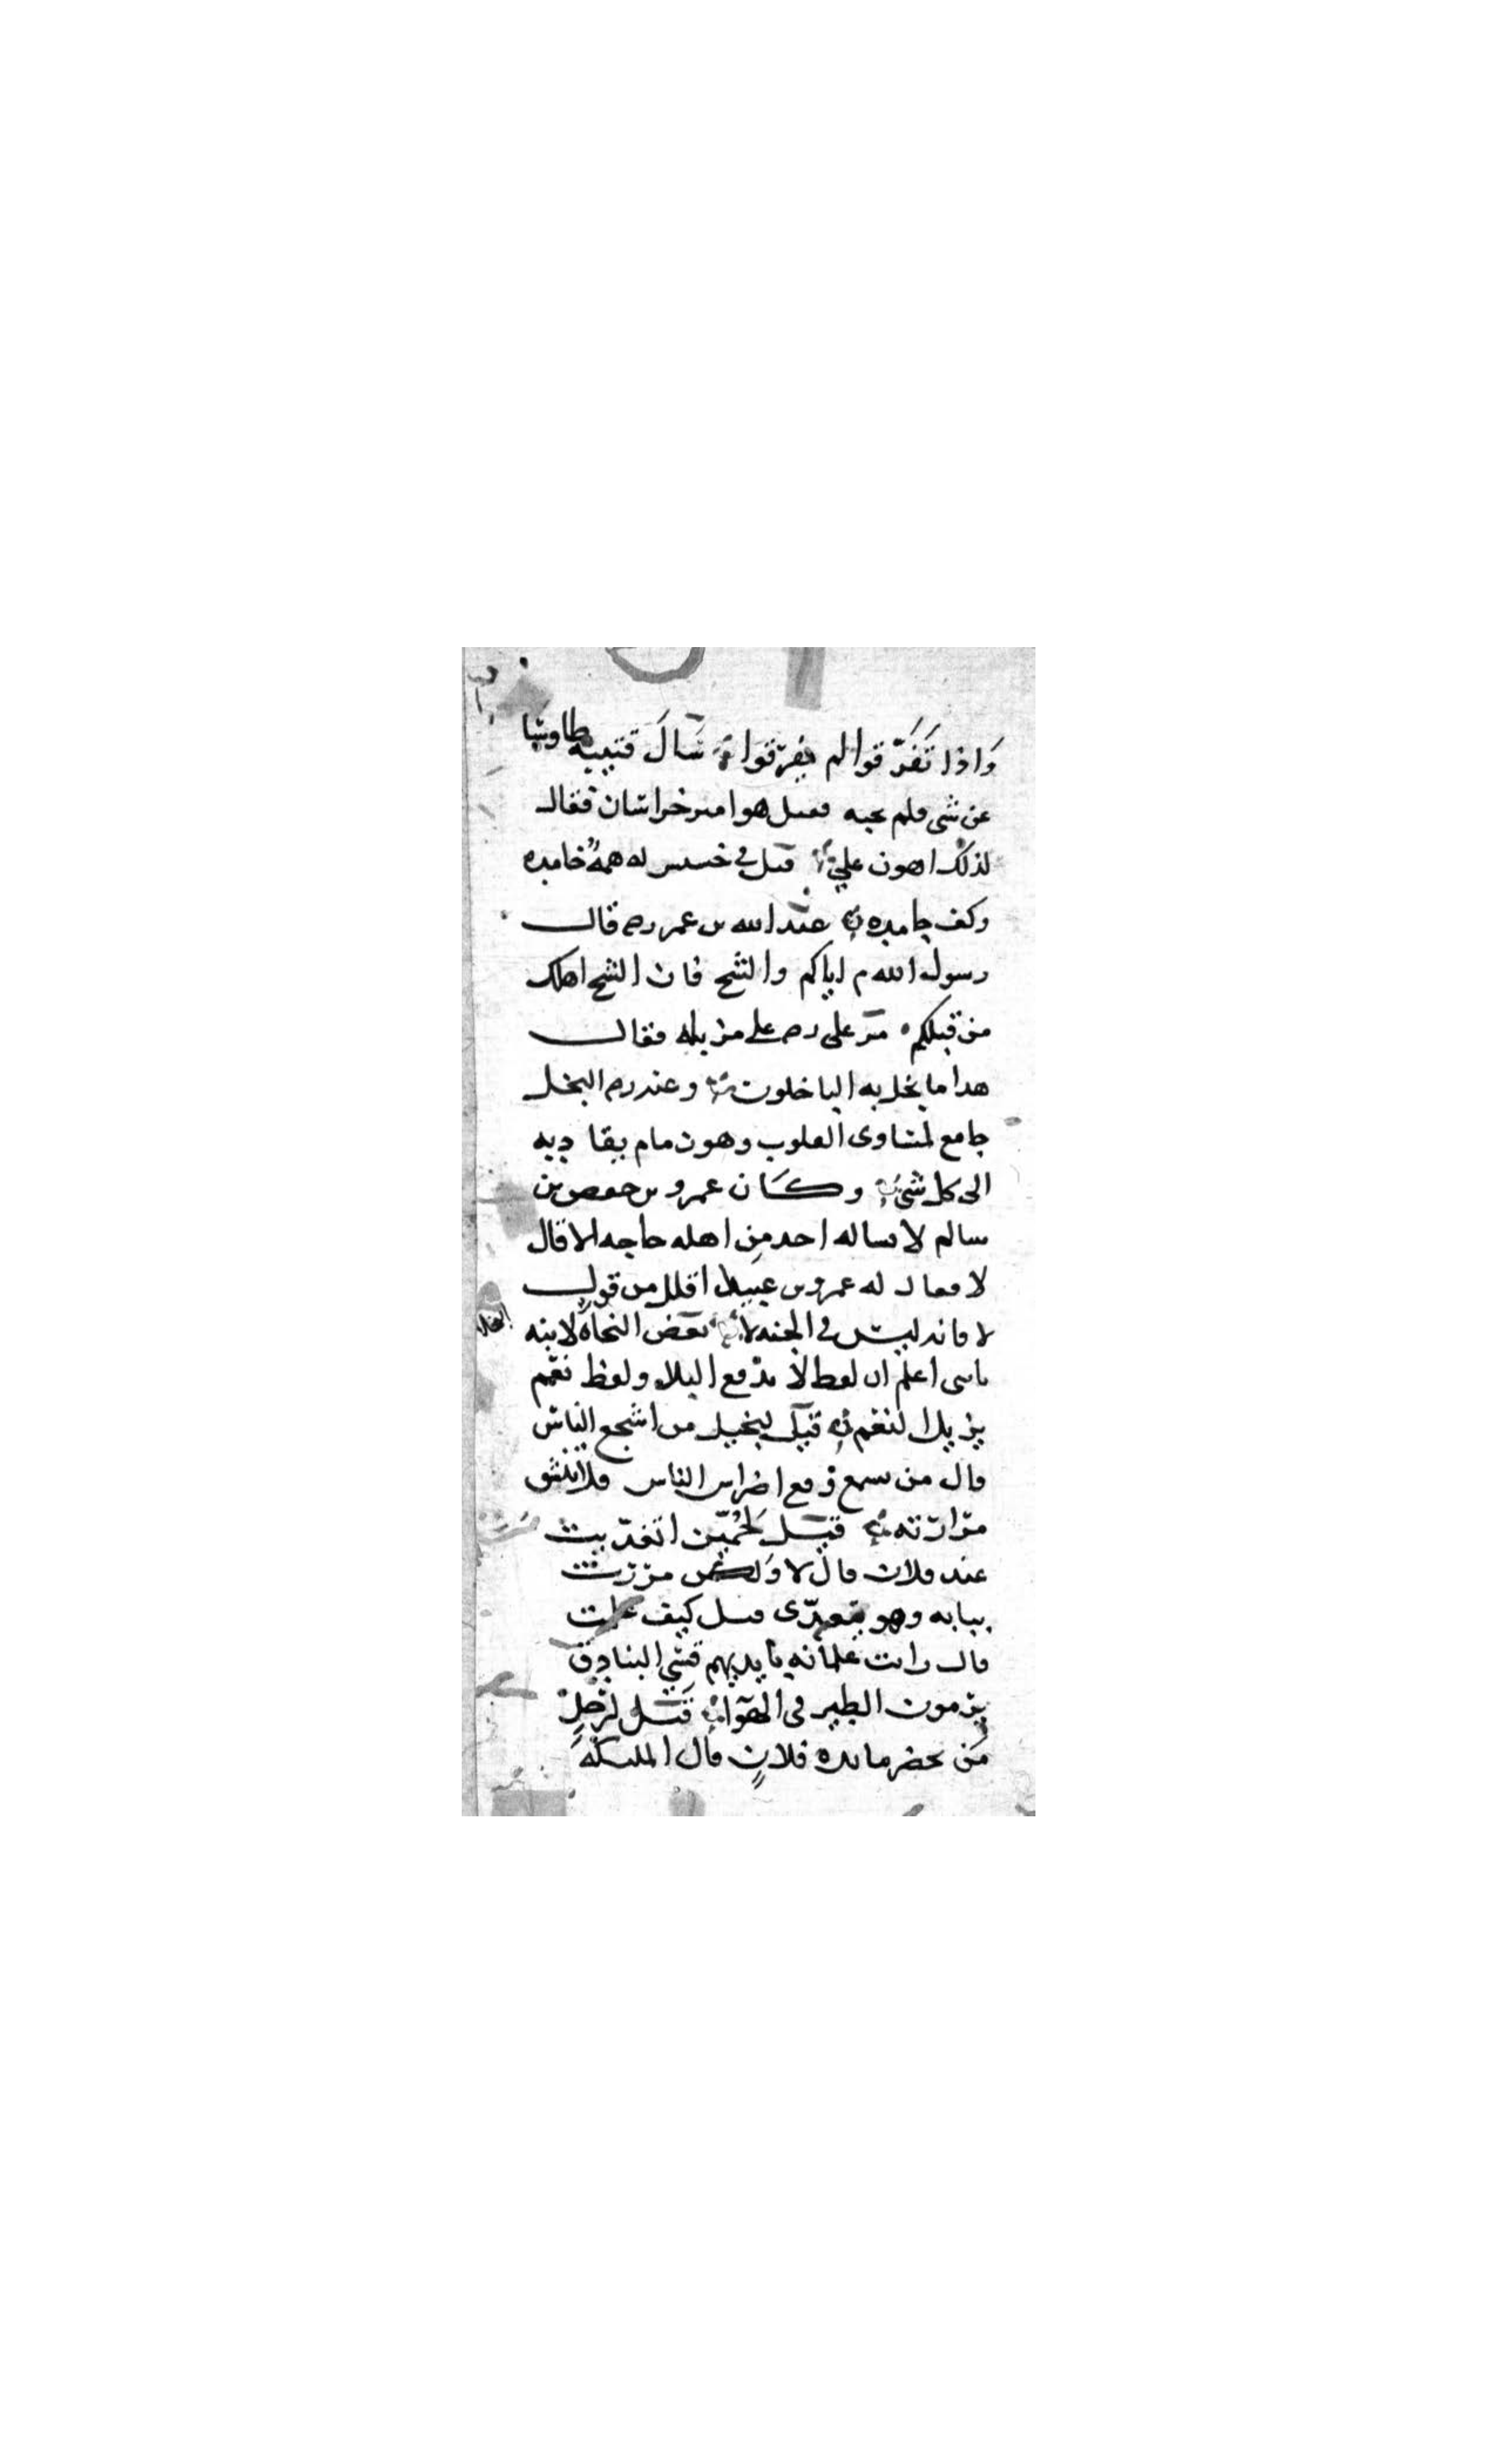 وَاذا تَفَرّقوا لم يفرّقوا سَالَ قتيبه طاوسًا
عن شى فلم يجبه فقيل هو امير خراسان فقال
لذلك اهون علي قيل في خسيس له همة خامده
وكف جامده عبد الله بن عمر رصه قال
رسول الله م اياكم والشح فان الشح اهلك
من قبلكم مر على رصه على مزبله فقال
هدا ما بخل به الباخلون وعنه رصه البخل
جامع لمساوى القلوب وهو زمام يقاد به
الى كل شي وكان عمرو بن حفص بن
سالم لا يساله احد من اهله حاجه الا قال
لا فقال له عمرو بن عبيد اقلل من قول
لا فانه ليس في الجنه لا بعض النحاة لابنه
يابنى اعلم ان لفظ لا يدفع البلاء ولفظ نعم
يزيل النعم قيل لبخيل من اشجع الناس
قال من سمع وقع اضراس الناس فلا تنشق
مرارته قيل لجُمَّين اتغدّيت
عند فلان قال لا وَلكن مررت
ببابه وهو يتغدّى قيل كيف علمت
قال رايت غلمانه بايديهم قسّي البنادق
يرمون الطير فى الهوا قيل لرجل
من يحضر مايده فلان قال الملئكة